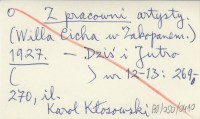 o Z pracowni artysty.
(Willa Cicha w Zakopanem)
1927. — Dziś i Jutro
( ) nr 12-13: 269,
270, il.
Karol Kłosowski